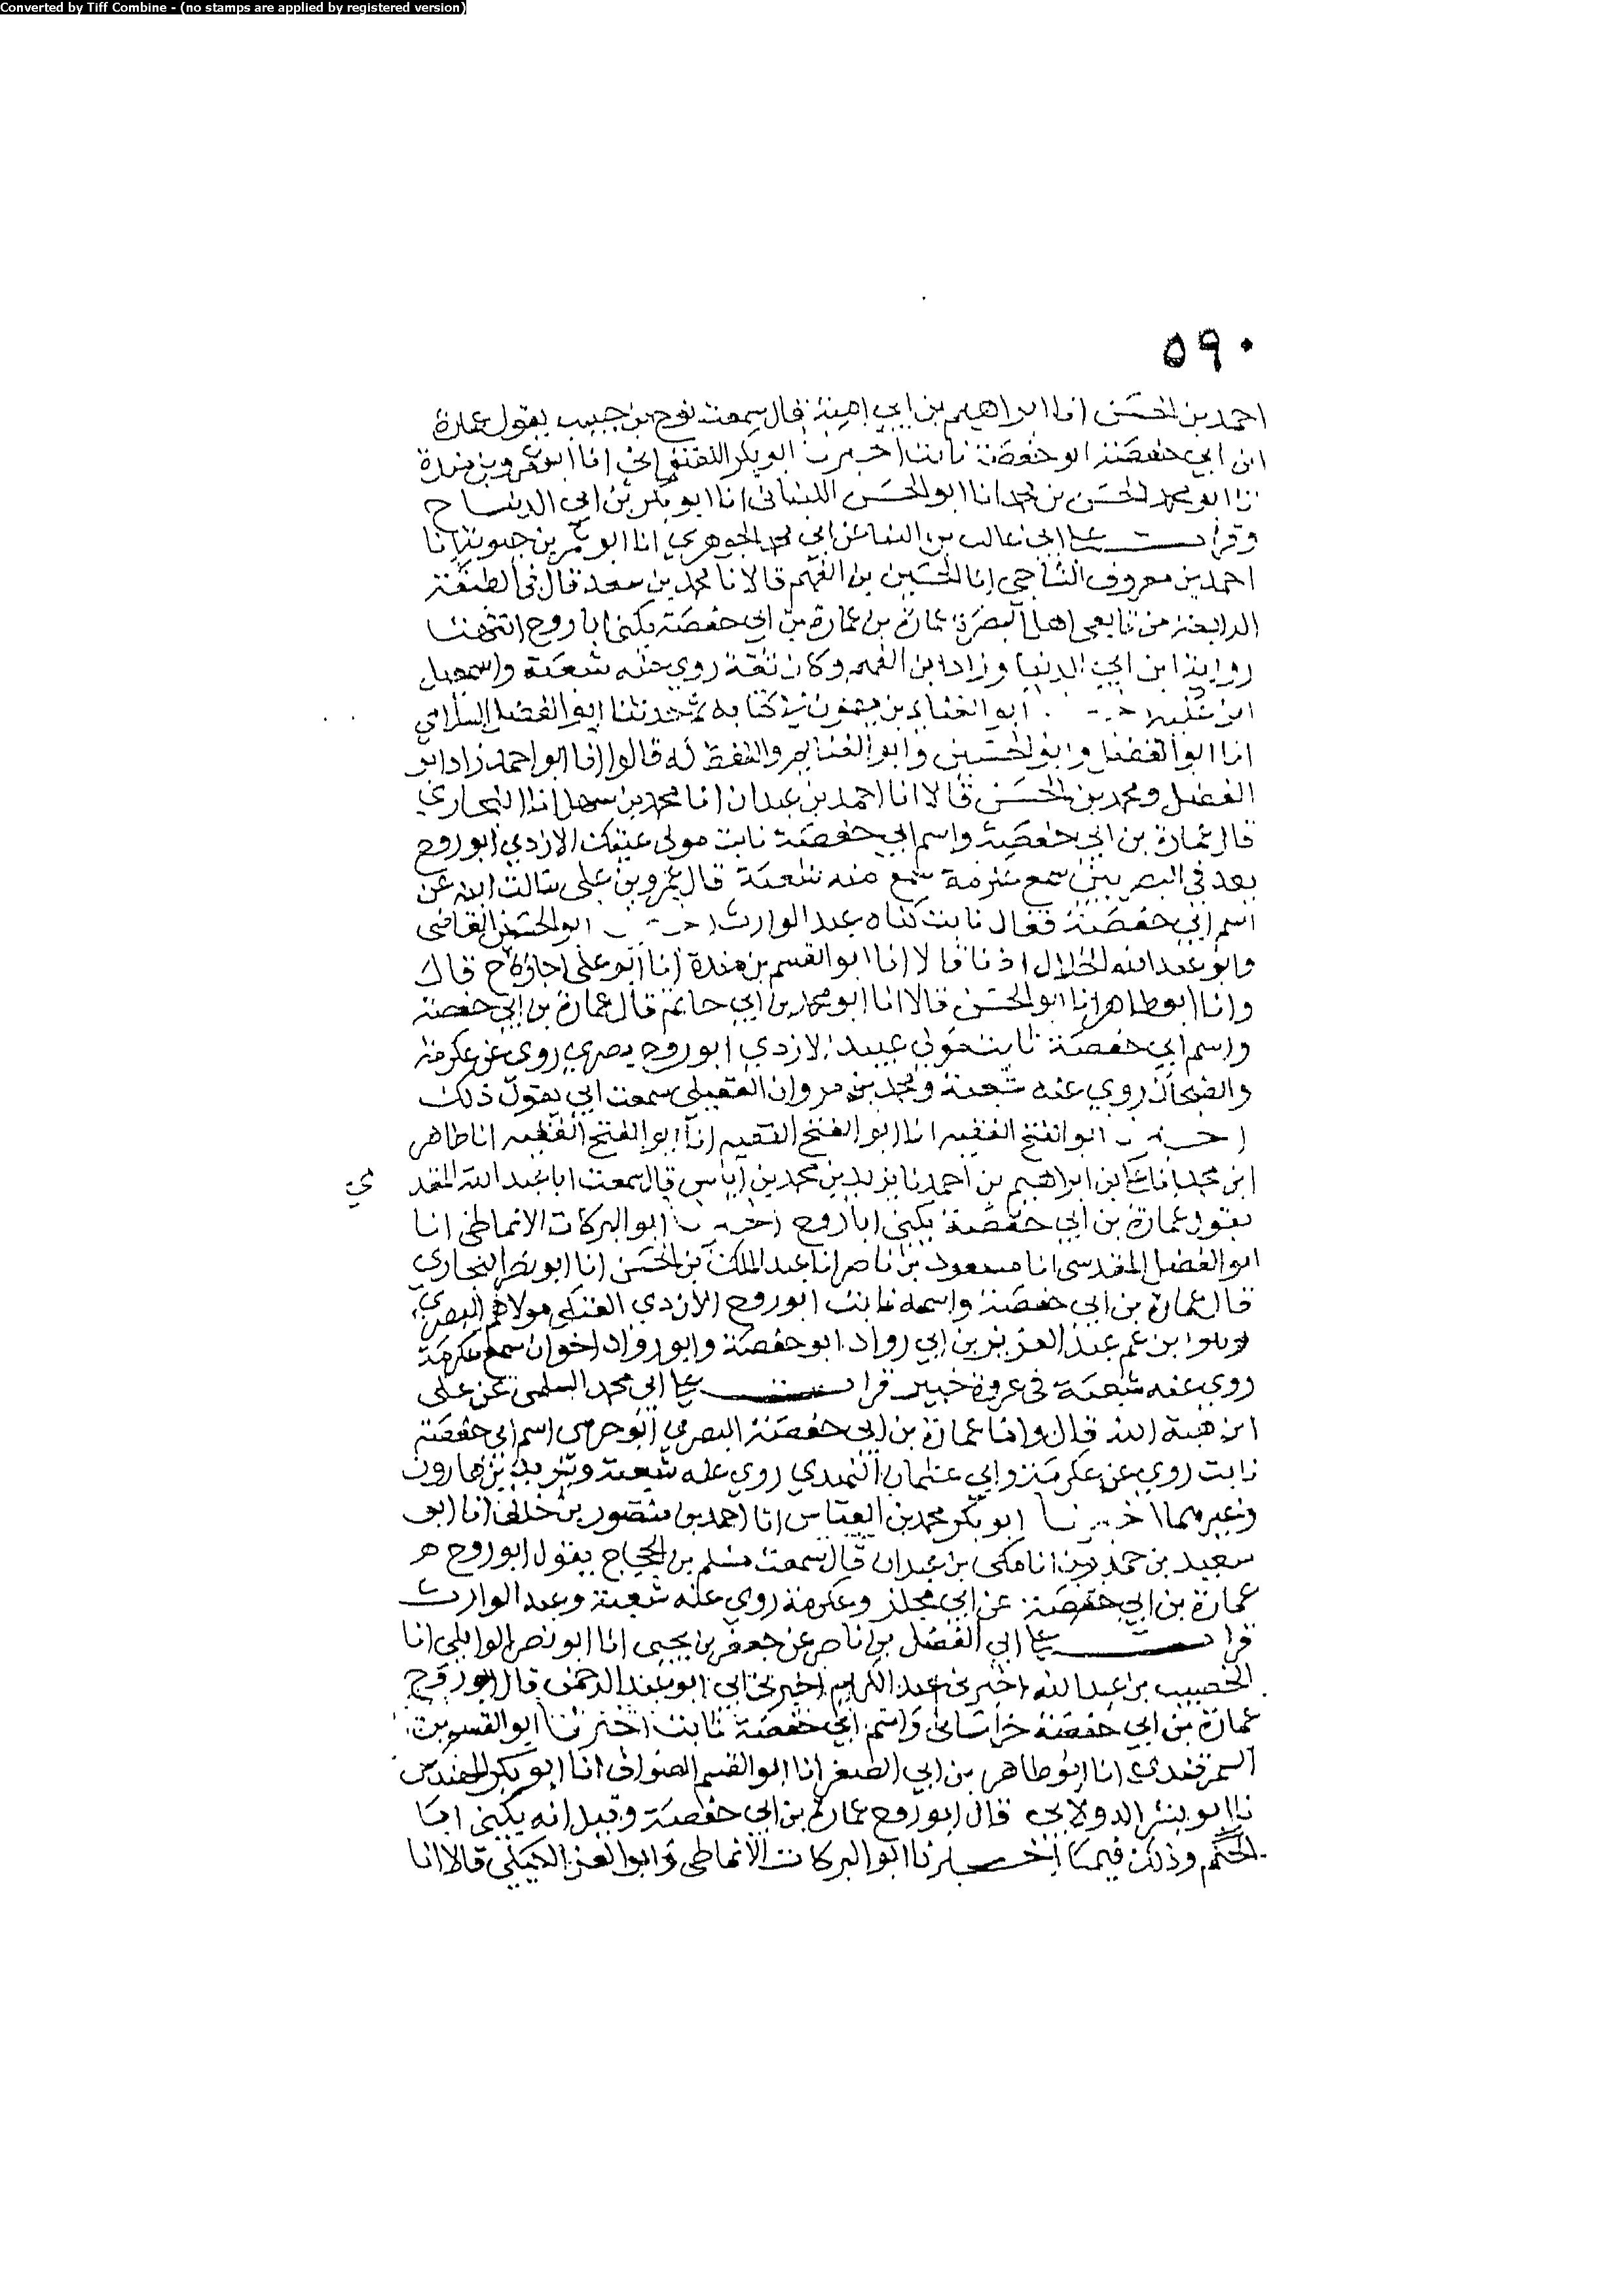 Converted by Tiff Combine - (no stamps are applied by registered version)
٥٩٠
احمد بن الحسن انا ابراهيم بن ابي امية قال سمعت نوح بن حبيب يقول عمارة
ابن ابي حفصة ابو حفصة ثابت اخبرنا ابو بكر اللفتواني انا ابو عمرو بن مندة
انا ابو محمد الحسن بن محمد انا ابو الحسن اللنباني انا ابو بكر بن ابي الدنيا ح
وقرات على ابي غالب بن البنا عن ابي محمد الجوهري انا ابو عمر بن حيوية انا
احمد بن معروف انا الحسين بن الفهم قالا نا محمد بن سعد قال في الطبقة
الرابعة من تابعي اهل البصرة عمارة بن عمارة بن ابي حفصة يكنى ابا روح انتهت
رواية ابن ابي الدنيا وزاد ابن الفهم وكان ثقة روى عنه شعبة واسمعيل
ابن علية ابو الغنائم بن ميمون في كتابه ثم حدثنا ابو الفضل السلامي
انا ابو الفضل وابو الحسين وابو الغنايم واللفظ له قالوا انا ابو احمد زاد ابو
الفضل ومحمد بن الحسن قالا انا احمد بن عبدان انا محمد بن سهل انا البخاري
قال عمارة بن ابي حفصة واسم ابي حفصة ثابت مولى عتيك الازدي ابو روح
يعد في البصريين سمع عكرمة سمع منه شعبة قال عمرو بن علي سالت ابنه عن
اسم ابي حفصة فقال ثابت كناه عبد الوارث ابو الحسن القاضي
وابو عبد الله الخلال اذنا قالا انا ابو القسم بن مندة انا ابو علي اجازة ح قال
وانا ابو طاهر انا ابو الحسن قالا انا ابو محمد بن ابي حاتم قال عمارة بن ابي حفصة
واسم ابي حفصة ثابت مولى عبيد الازدي ابو روح بصري روى عن عكرمة
والضحاك روى عنه شعبة ومحمد بن مروان العقيلي سمعت ابي يقول ذلك
ابو الفتح الفقيه انا ابو الفتح الفقيه انا ابو الفتح الفقيه انا طاهر
ابن محمد انا علي بن ابراهيم بن احمد نا يزيد بن محمد بن اياس قال سمعت ابا عبد الله المقد
مي
يقول عمارة بن ابي حفصة يكنى ابا روح ابو البركات الانماطي انا
ابو الفضل المقدسي انا مسعود بن ناصر انا عبد الملك بن الحسن انا ابو نصر البخاري
قال عمارة بن ابي حفصة واسمه ثابت ابو روح الازدي العتكي مولاهم البصري
وهو ابن عم عبد العزيز بن ابي رواد ابو حفصة وابو رواد اخوان سمع عكرمة
روى عنه شعبة في غزوة خيبر قرات على ابي محمد السلمي عن علي
ابن هبة الله قال واما عمارة بن ابي حفصة البصري ابو حرمي اسم ابي حفصة
ثابت روى عن عكرمة وابي عثمان النهدي روى عنه شعبة ويزيد بن هارون
وغيرهما اخبرنا ابو بكر محمد بن العباس انا احمد بن منصور بن خلف انا ابو
سعيد بن حمدون انا مكي بن عبدان قال سمعت مسلم بن الحجاج يقول ابو روح
عمارة بن ابي حفصة عن ابي مجلز وعكرمة روى عنه شعبة وعبد الوارث
قرات على ابي الفضل بن ناصر عن جعفر بن يحيى انا ابو نصر الوايلي انا
الخصيب بن عبد الله اخبرني عبد الكريم اخبرني ابي ابو عبد الرحمن قال ابو روح
عمارة بن ابي حفصة خراساني واسم ابي حفصة ثابت اخبرنا ابو القسم بن
السمرقندي انا ابو طاهر بن ابي الصقر انا ابو القسم الصواف انا ابو بكر المهندس
نا ابو بشر الدولابي قال ابو روح عمارة بن ابي حفصة وقيل انه يكنى ابا
الحكم وذلك فيما اخبرنا ابو البركات الانماطي وابو العز الكيلي قالا انا